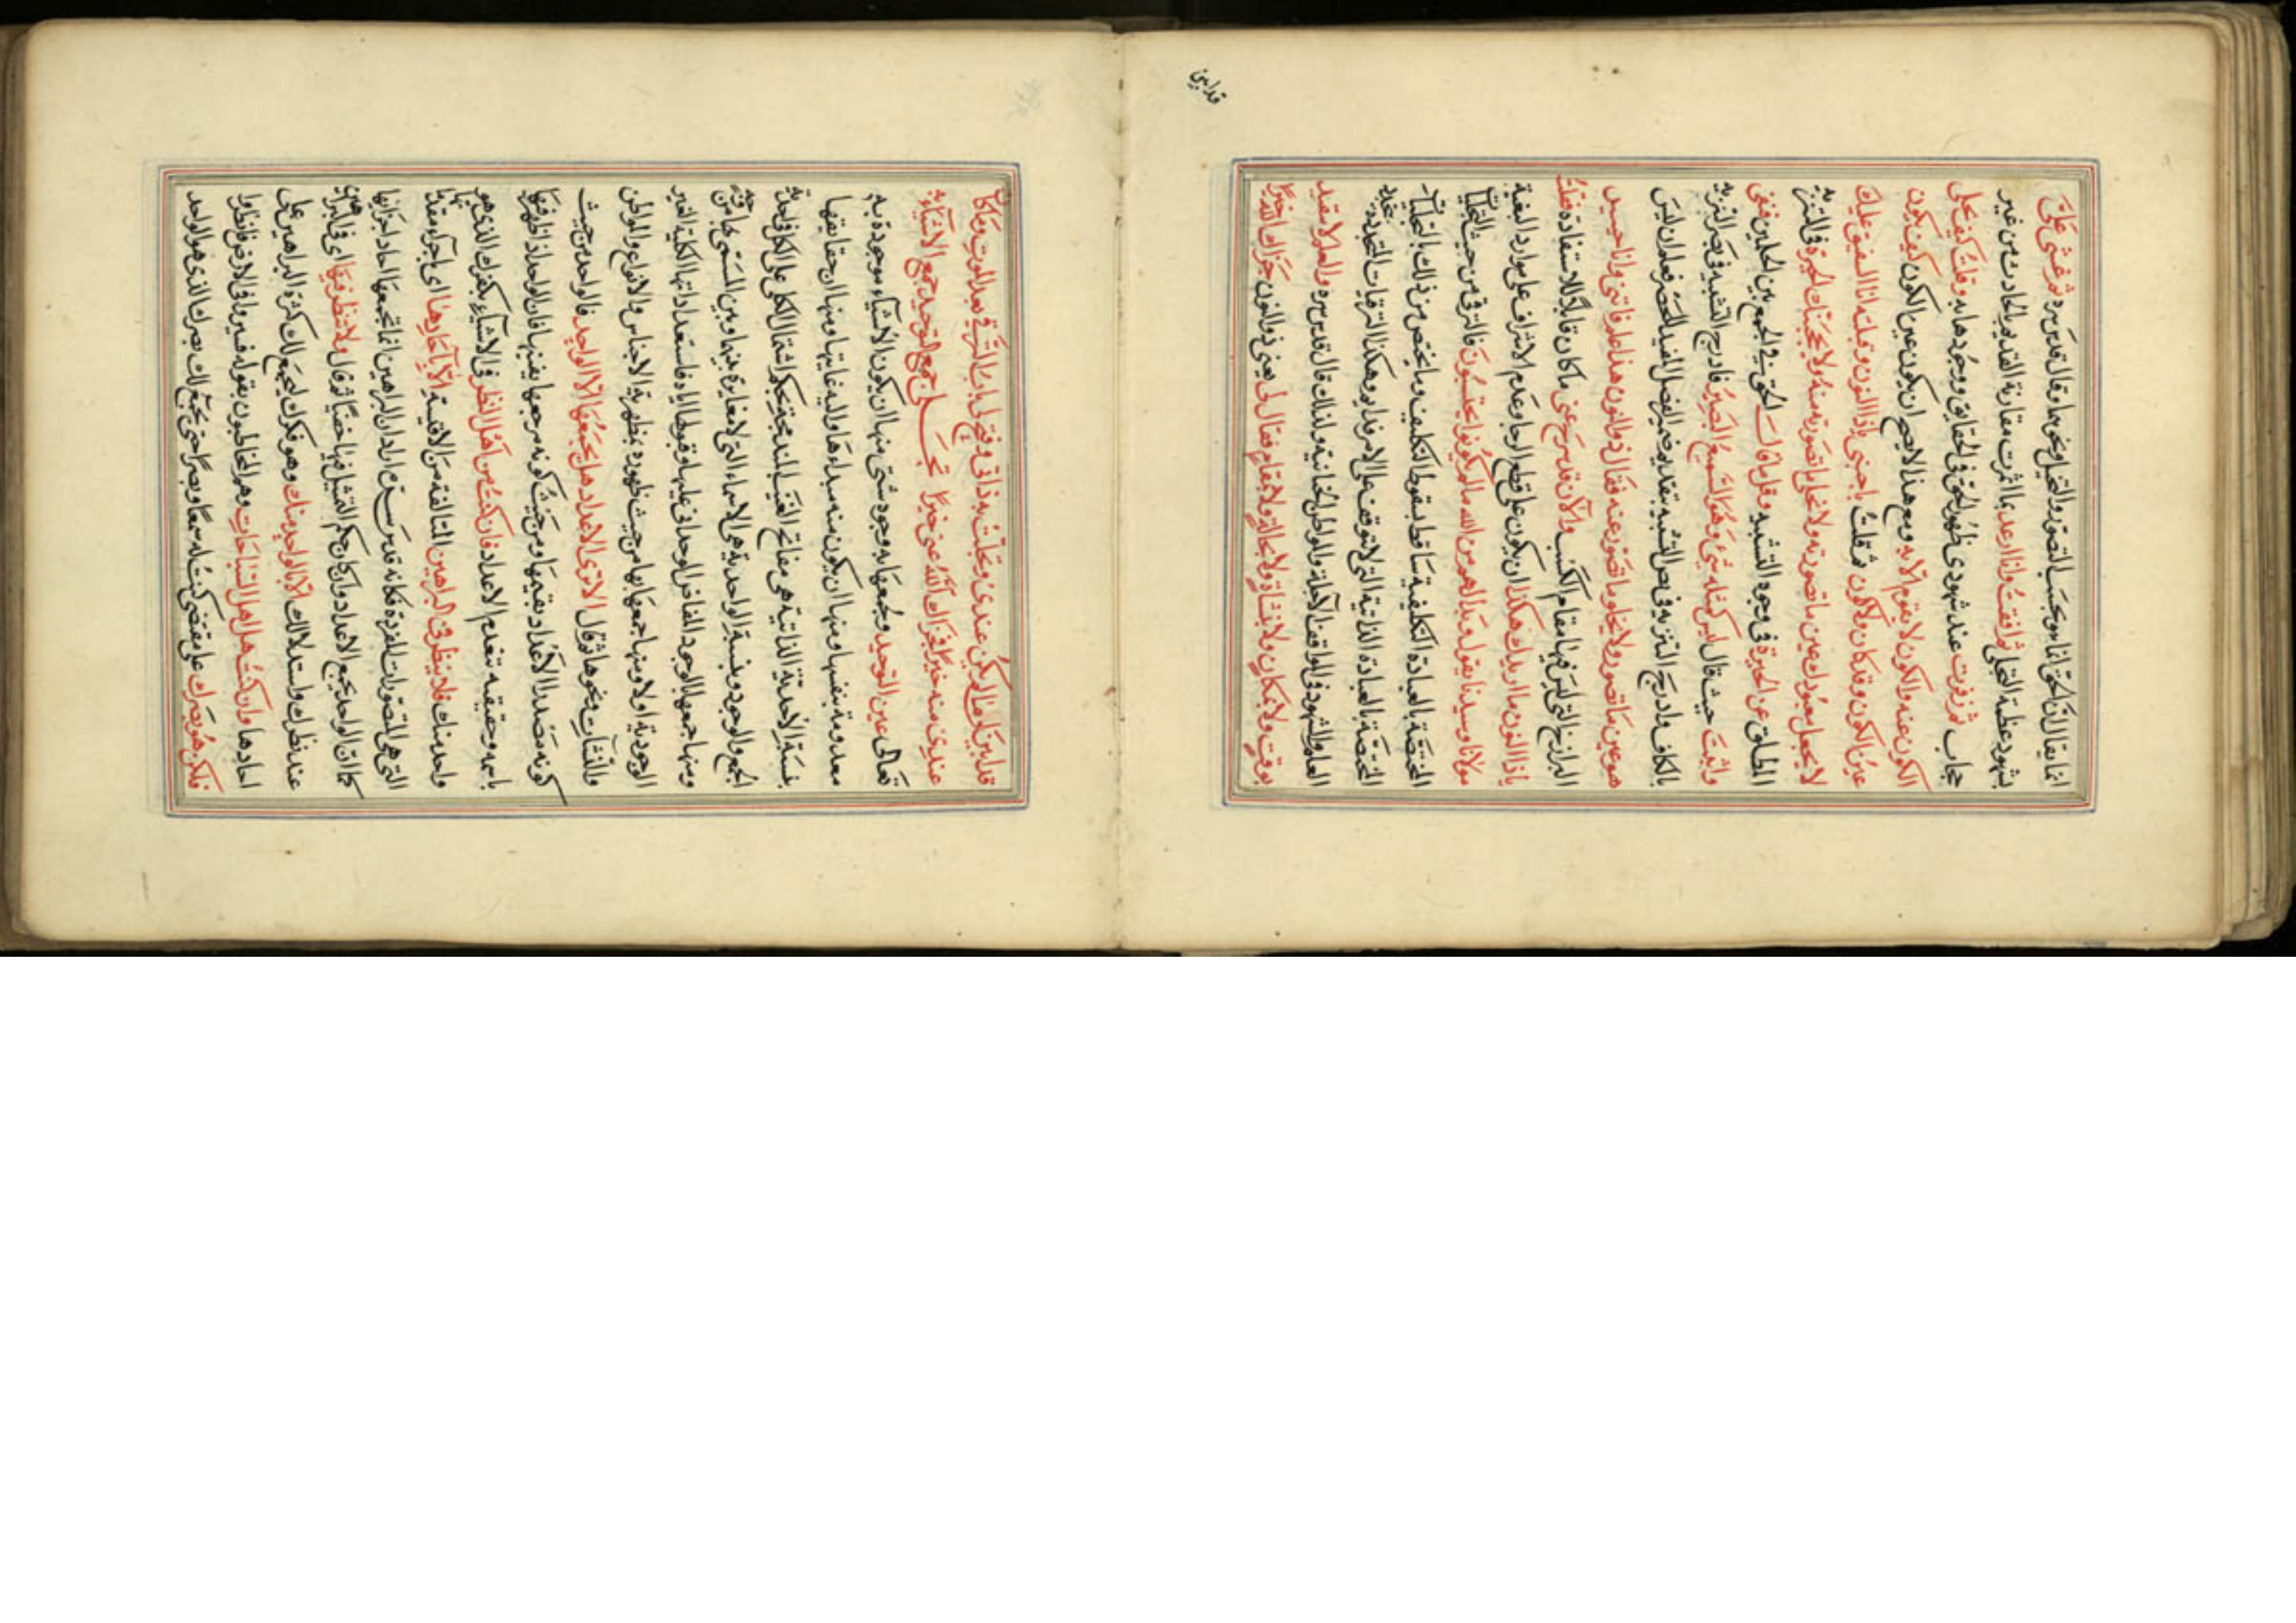 انما يقال لذلك الحق انما هو بحسب التصور والتخيل ونحوهما وقال قدس سره ثم غشى على
بشهود عظمة التجلى ثم افقت وانا ارعد بما اثرت مقارنة القديم بالحادث من غير
حجاب ثم زفرت عند شهودى ظهور الحق فى الحقايق ووجودها به وقلت كيف تخلى
الكون عنه والكون لا يقوم الا به ومع هذا لا يصح ان يكون عين الكون كيف يكون
عين الكون وقد كان ولا كون ثم قلت يا حبيبى يا ذا النون وقبلته انا الشفيق عليك
لا تجعل معبودك عين ما تصورته ولا تخلى ما تصورته منه ولا تحجبنك الحيرة فى التنزيه
المطلق عن الحيرة فى وجوه التشبيه وقل ما قال الحق فى الجمع بين الحكمين فنفى
واثبت حيث قال ليس كمثله شئ وهو السميع البصير فادرج التشبيه فى نص التنزيه
بالكاف وادرج التنزيه فى نص التشبيه بتقديم ضمير الفصل المفيد للحصر فعلم ان ليس
هو عين ما تصور ولا يخلو ما تصور عنه فقال ذو النون هذا علم فاتنى وانا حبيس
البرازخ التى ليس فيها مقام الكسب والآن قد سرح عنى ما كان قابلا للاستفادة فقلت
يا ذا النون ما اريدك هكذا ان يكون على قطع الرجا وعدم الاشراف على موارد البغية
مولانا وسيدنا يقول وبدا لهم من الله ما لم يكونوا يحتسبون فالترقى من حيث التجليات
المختصة بالعبادة التكليفية ساقط بسقوط التكليف وما يختص من ذلك بالتجليات
المختصة بالعبادة الذاتية التى لا توقف على الامر فدايم وهكذا الترقيات التجددية بتجدد
العلم والشهود فى المواقف الآجلة والمواطن الجنانية ولذلك قال قدس سره والعلم لا يتقيد
بوقت ولا بمكان ولا بنشاة ولا بحالة ولا بمقام فقال لى يعنى ذو النون جزاك الله خيرا
قد ابين
قد ابين لى ما لم يكن عندى وتجلت به ذاتى وفتح لى باب الترقى بعد الموت وما كان
عندى منه خبر فجزاك الله عنى خيرا تجلى جمع التوحيد جمع الاشياء به
تعالى عين التوحيد وجمعها به وجوه شتى منها ان يكون الاشياء موجودة به
معدومة بنفسها ومنها ان يكون منه مبداءها واليه غايتها ومنها ان حقايقها
بنسبة الاحدية الذاتية هى مفاتح الغيب المندمجة بحكم اشتمال الكل على الكل فى احدية
الجمع والوجود وبنسبة الواحدية هى الاسماء التى لا مغايرة بينها وبين المسمى بها من وجه
ومنها جمعها بالوجود الفايض الوحدانى عليها وقبولها اياه باستعداداتها الكلية الغير
الوجودية اولا ومنها جمعها بها من حيث ظهوره بمظهرية الاجناس والانواع والمواطن
والنشآت ونحوها ثم قال الا ترى الاعداد هل يجمعها الا الواحد فالواحد من حيث
كونه مصدرا للاعداد يقيمها ومن حيث كونه مرجعها يفنيها فان الواحد اذا ظهر فيها
باسمه وحقيقته تنعدم الاعداد فان كنت من اهل النظر فى الاشياء بفكرك الذى هو
واحد منك فلا تنظر فى البراهين المتالفة من الاقيسة الا بآحادها اى باجزاء مقدماتها
التى هى المتصورات المفردة فكانه قدس سره اراد ان البراهين انما تجمعها احاد اجزائها
كما ان الواحد يجمع الاعداد وان كان حكم التمثيل فيها خفيا ثم قال ولا تنظر فيها اى فى البراهين
عند نظرك واستدلالك الا بالواحد منك وهو فكرك ليجمع لك كثرة البراهين على
احادها وان كنت من اهل السباحات وهم المخاطبون بقوله فسيروا فى الارض فانظروا
فلكن هو بصرك على مقتضى كنت له سمعا وبصرا حتى يجمع لك بصرك الذى هو الواحد